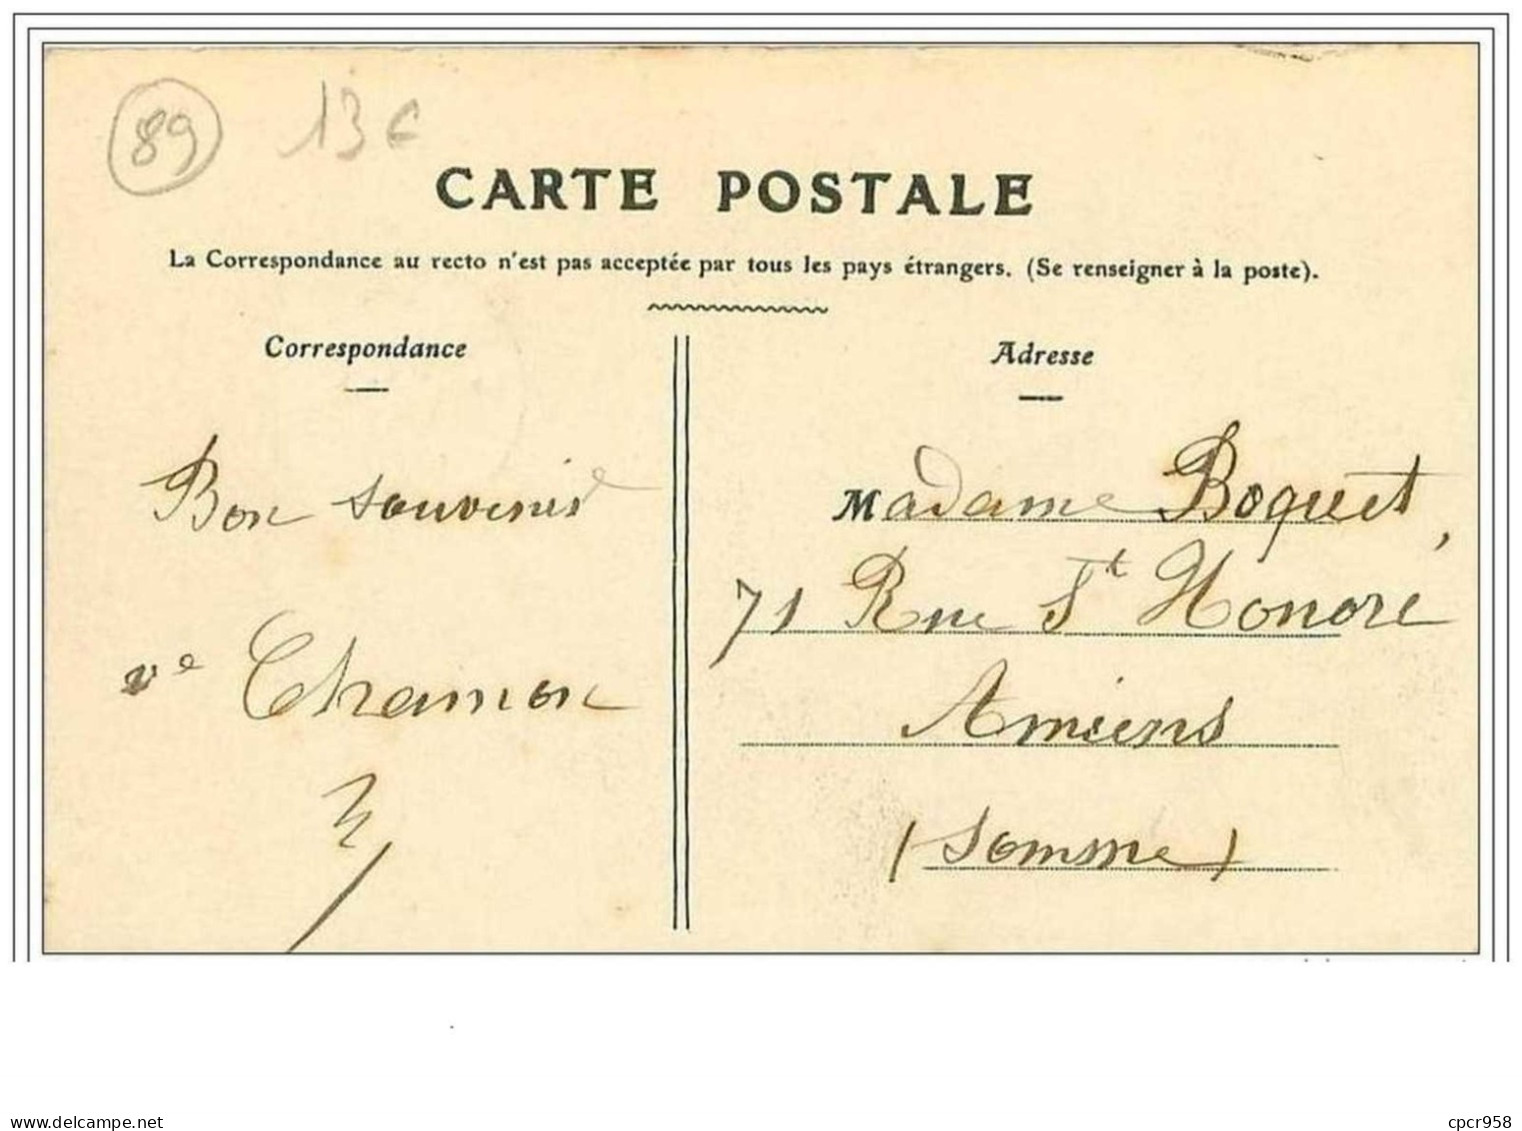 89 13€
CARTE POSTALE
La Correspondance au recto n'est pas acceptée par tous les pays étrangers. (Se renseigner à la poste).
Correspondance
Bon souvenir
Ve Chamon
Adresse
Madame Boquet,
71 Rue St Honoré
Amiens
(Somme)
delcampe.net
cpcr958